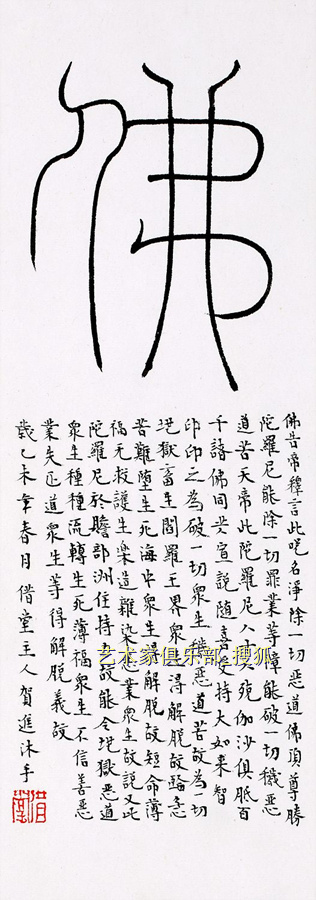 佛
佛告帝釋言此呪名淨除一切惡道佛頂尊勝
陀羅尼能除一切罪業等障能破一切穢惡
道苦天帝此陀羅尼八十八殑伽沙俱胝百
千諸佛同共宣說隨喜受持大如來智
印印之為破一切眾生穢惡道苦故為一切
地獄畜生閻羅王界眾生得解脫故臨急
苦難墮生死海中眾生得解脫故短命薄
福无救護生樂造雜染惡業眾生故說又此
陀羅尼於贍部洲住持力故能令地獄惡道
眾生種種流轉生死薄福眾生不信善惡
業失正道眾生等得解脫義故
歲乙未年春月借堂主人賀進沐手
借堂
艺术家俱乐部_搜狐